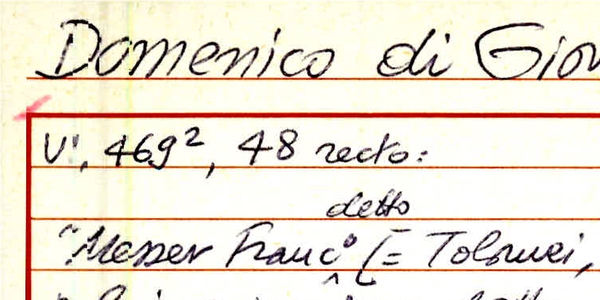 Domenico di Giov
V', 469², 48 recto:
detto
"Messer Franc° (= Tolomei,